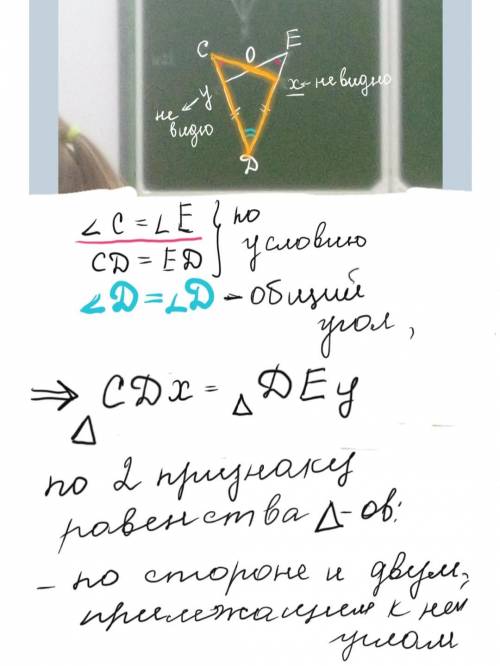 C O E
y x - не видно
не
видно
D
∠C = ∠E } по
CD = ED } условию
∠D = ∠D - общий
угол,
⇒ △CDx = △DEy
по 2 признаку
равенства △-ов:
- по стороне и двум,
прилежащим к ней
углам